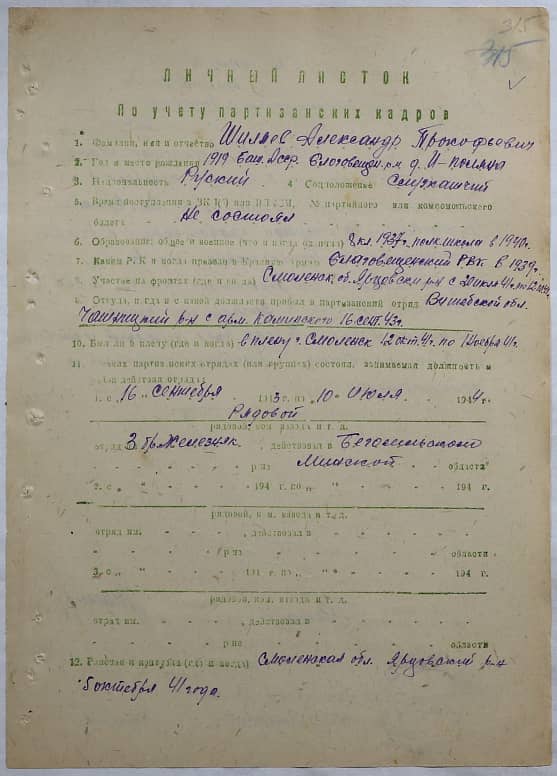 315
315
ЛИЧНЫЙ ЛИСТОК
По учету партизанских кадров
1. Фамилия, имя и отчество Шиляев Александр Прокофьевич
2. Год и место рождения 1919 Баш. Асср. Благовещен. р-н д. И-поляна
3. Национальность Руский 4 Соцположение Служащий
5. Время вступления в ВКП(б) или ВЛКСМ, № партийного или комсомольского
билета Не состоял
6. Образование: общее и военное (что и когда окончил) 8 кл. 1937г. полк. школа в 1940г.
7. Каким РВК и когда призван в Красную Армию Благовещенский РВК в 1939г.
8. Участие на фронтах (где и когда) Смоленск. об. Ярцовски р-н с
9. Откуда, когда и с какой должности прибыл в партизанский отряд Витебской обл.
Чашницкий р-н с арм. Каминского 16 сент. 43г.
10. Был ли в плену (где и когда) в плену г. Смоленск 12 окт. 41г. по 1 ноября 41г.
11. В каких партизанских отрядах (или группах) состоял, занимаемая должность и
район действия отряда:
1. с „16„ сентября 1943 г. по „10„ Июля 1944 г.
Рядовой
рядовой, ком. взвода и т. д.
отряд 3 бр. Железняк. , действовал в Бегомльского
р-не Минской области
2. с „ „ 194 г. по „ „ 194 г.
рядовой, ком. взвода и т. д.
отряд им. , действовал в
р-не области
3. с „ „ 194 г. по „ „ 194 г
рядовой, ком. взвода и т. д.
отряд им. , действовал в
р-не области
12. Ранения и контузия (где и когда) Смоленская обл. Ярцовский р-н
5 октября 41 года.